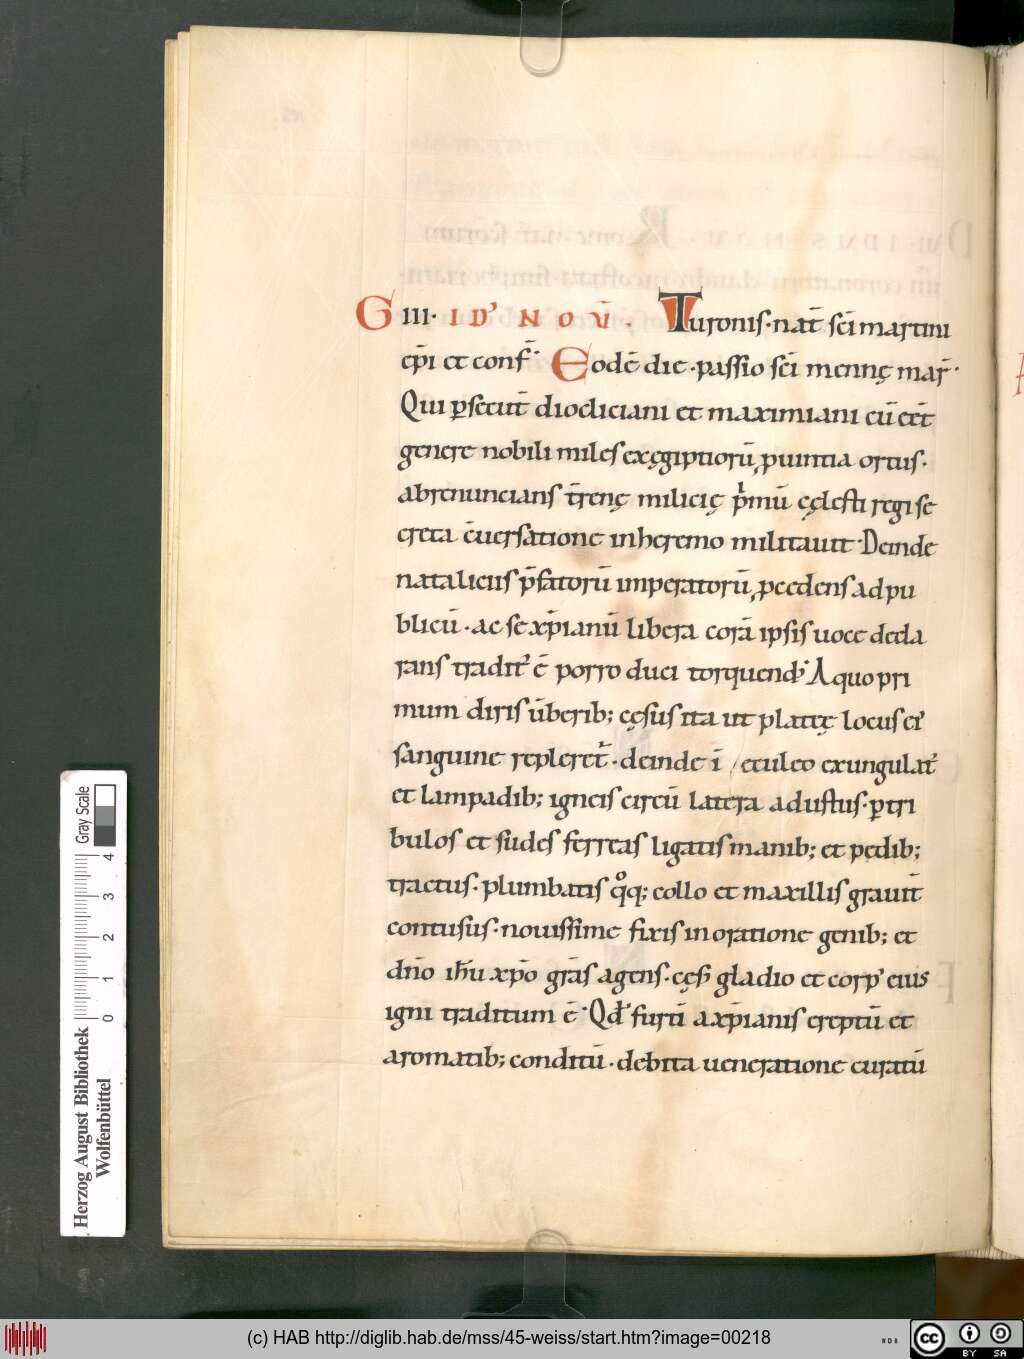 G III· ID' NOV̄. Turonis·nat̄ sc̄i martini
ep̄i et conf̄· Eodē die·passio sc̄i mennę mar̄·
Qui p̱secut̄ diocliciani et maximiani cū eēt
genere nobili miles ex ęgiptiorū puintia ortus·
abrenuncians t̄renę milicię p̍mū cęlesti regi se
creta c̄uersatione in heremo militauit·Deinde
nataliciis p̄fatorū imperatorū pcedens ad pu
blicū·ac se xp̄ianū libera corā ipsis uoce decla
rans tradit' ē porro duci torquend'·A quo pri
mum diris ūberib; cęsus ita ut platęę locus ei'
sanguine repleret̄·deinde ī eculeo exungulat'
et lampadib; igneis circū latera adustus·p̱ tri
bulos et sudes ferreas ligatis manib; et pedib;
tractus·plumbatis q°q; collo et maxillis grauit̄
contusus·nouissime fixis in oratione genib; et
dn̄o ih̄u xp̄o gr̄as agens·cęs' gladio et corp' eius
igni traditum ē·Qd̄ furtī a xp̄ianis ereptū et
aromatib; conditū·debita ueneratione curatū
Herzog August Bibliothek
Wolfenbüttel
0 1 2 3 4
Gray Scale
(c) HAB http://diglib.hab.de/mss/45-weiss/start.htm?image=00218
WDB
cc
BY SA